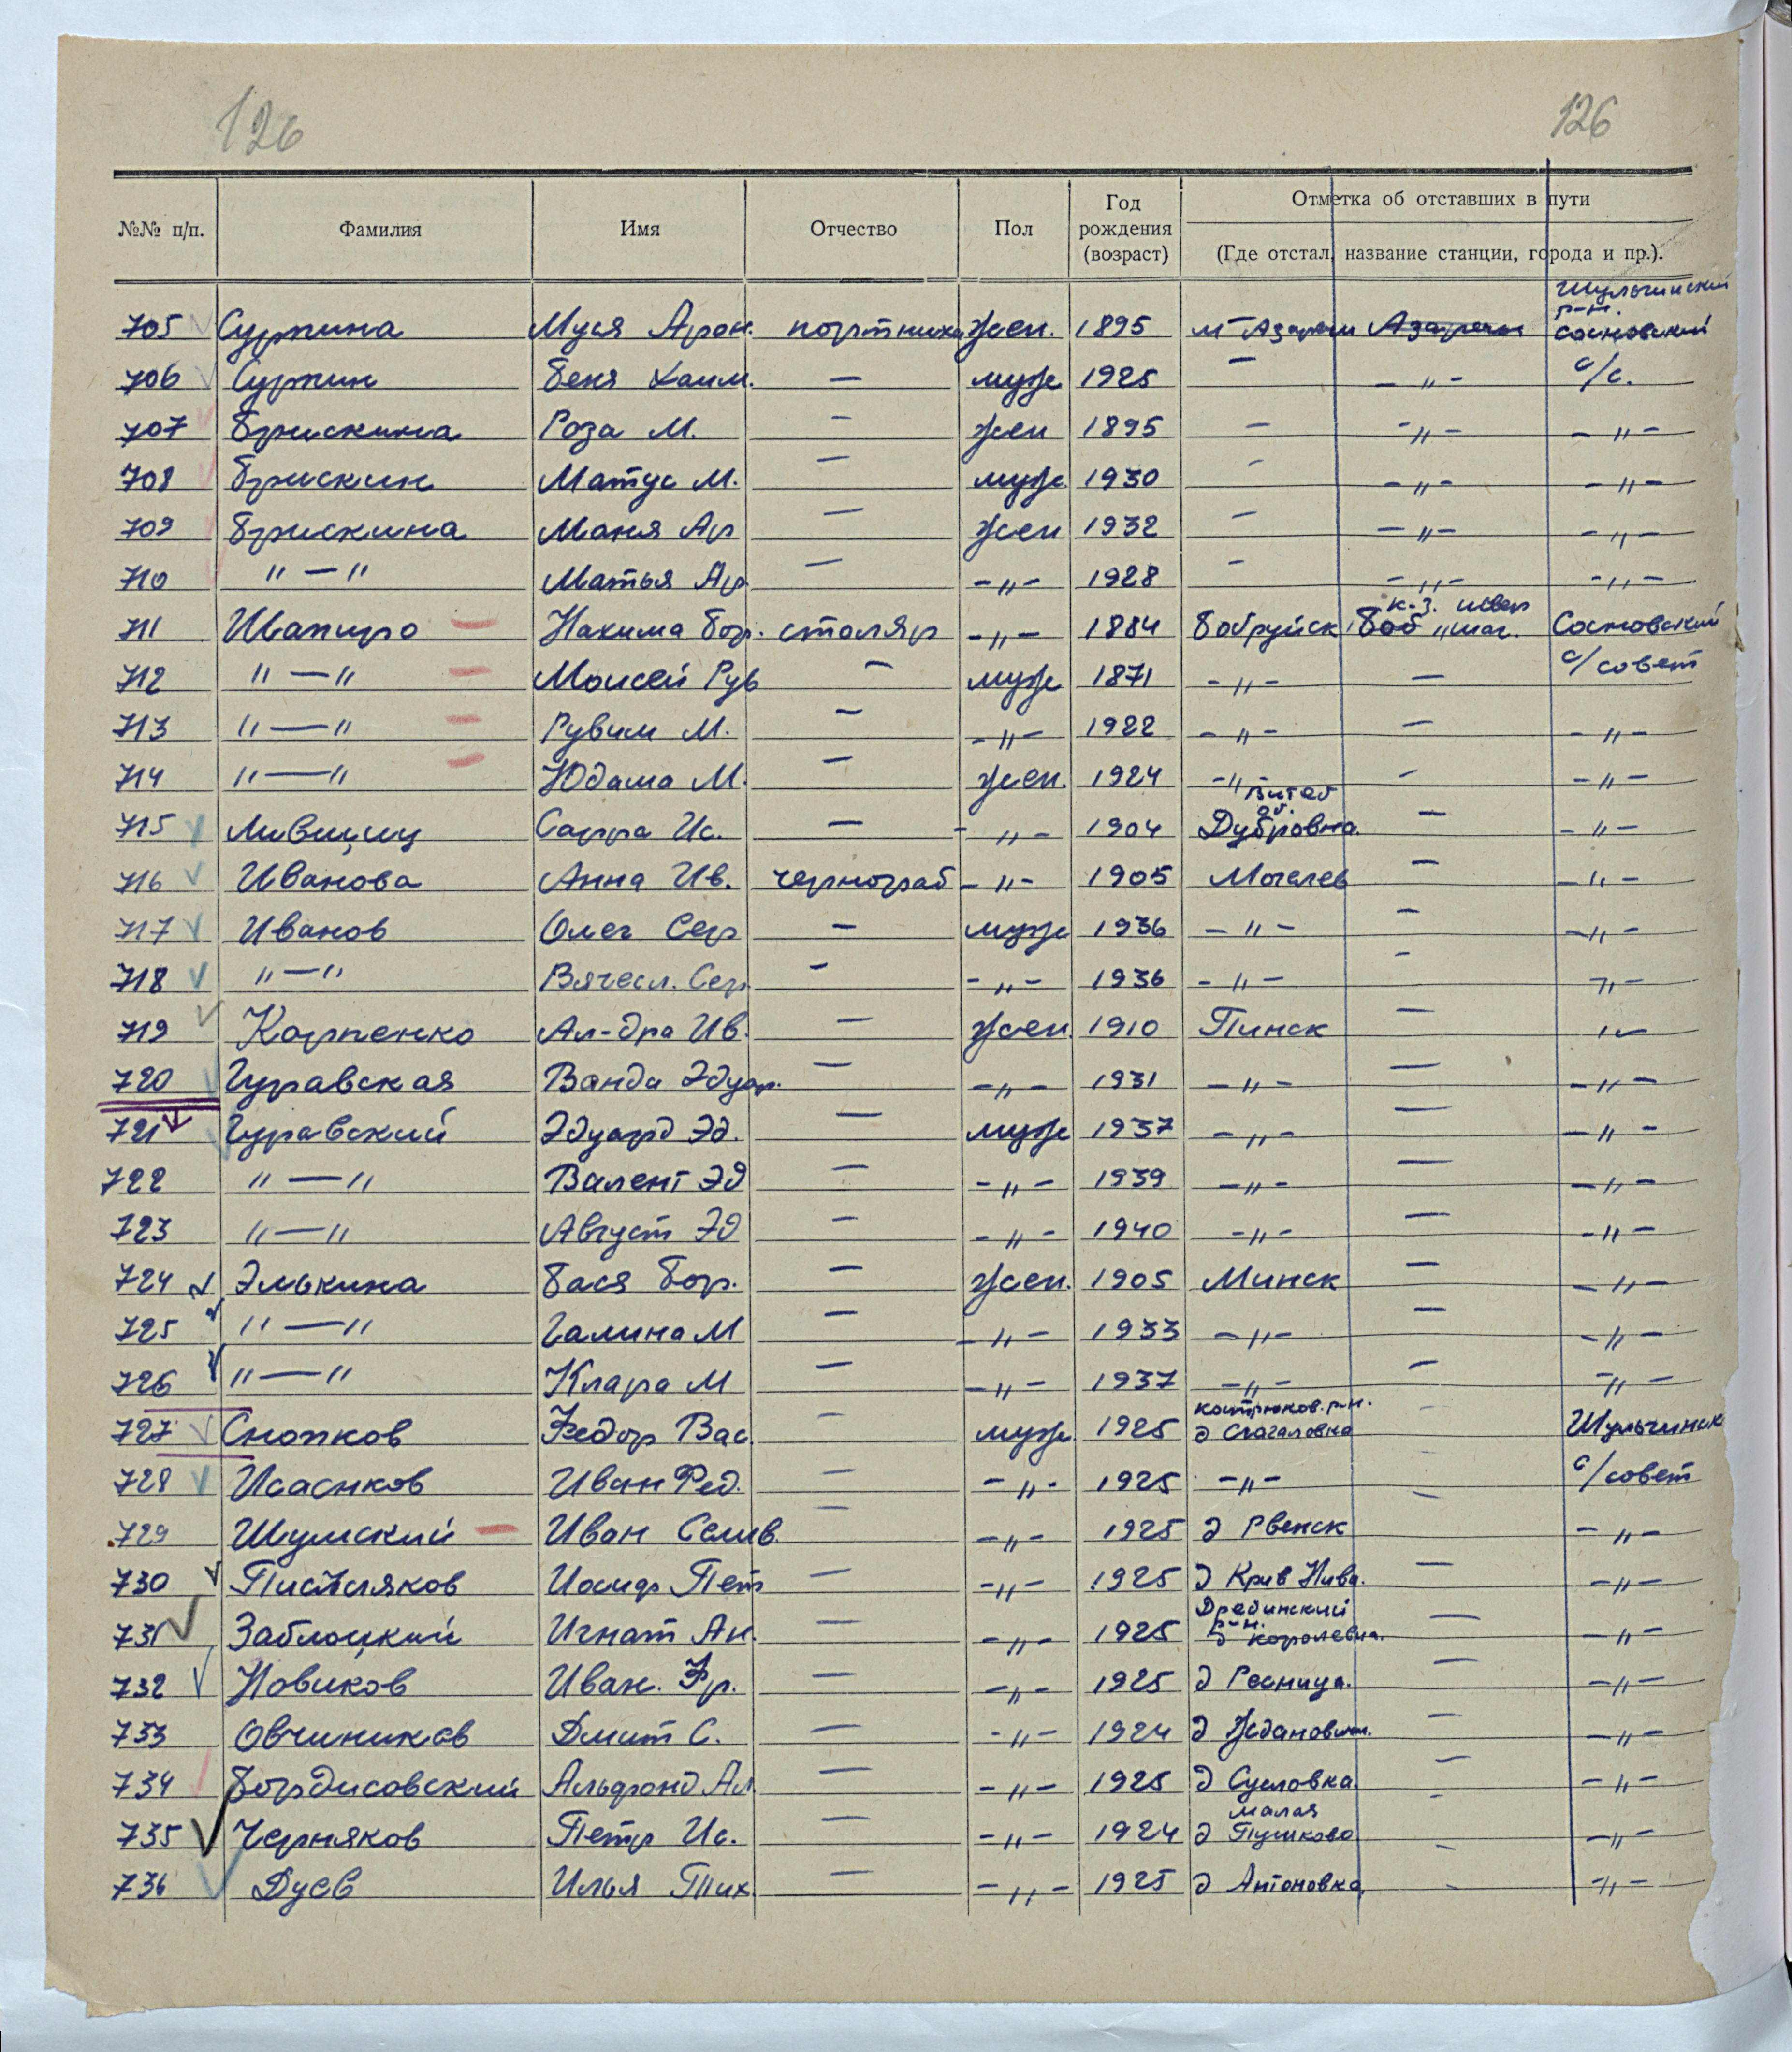 126 126
№№ п/п. Фамилия Имя Отчество Пол Год рождения (возраст) Отметка об отставших в пути
(Где отстал, название станции, города и пр.).
Шульгинский
р-н.
705 Сурпина Муся Арон. портниха жен. 1895 м Азаричи Азаричи Сосновский
706 Сурпин Беня Хаим. — муж 1925 — — " — с/с.
707 Брискина Роза М. — жен 1895 — — " — — " —
708 Брискин Матус М. — муж 1930 — — " — — " —
709 Брискина Маня Ар — жен 1932 — — " — — " —
710 " — " Матья Ар — — " — 1928 — — " — — " —
к-з.
711 Шапиро Нахима Бор. столяр — " — 1884 Бобруйск Боб Сосновский
712 " — " Моисей Рув — муж 1871 — " — — с/совет
713 " — " Рувим М. — — " — 1922 — " — — — " —
714 " — " Юдама М. — жен. 1924 — " — — — " —
Витеб
об.
715 Лившиц Сарра Ис. — — " — 1904 Дубровна. — — " —
716 Иванова Анна Ив. чернораб — " — 1905 Могелев — — " —
717 Иванов Олег Сер — муж 1936 — " — — — " —
718 " — " Вячесл. Сер — — " — 1936 — " — — — " —
719 Карпенко Ал-дра Ив. — жен. 1910 Пинск — " —
720 Гуравская Ванда Эдуар. — — " — 1931 — " — — — " —
721 Гуравский Эдуард Эд. — муж 1937 — " — — — " —
722 " — " Валент Эд — — " — 1939 — " — — — " —
723 " — " Август Эд — — " — 1940 — " — — — " —
724 Элькина Бася Бор. — жен. 1905 Минск — — " —
725 " — " Галина М — — " — 1933 — " — — — " —
726 " — " Клара М — — " — 1937 — " — — — " —
костюков. р-н.
727 Снопков Федор Вас. — муж. 1925 д — Шульгинск
728 Исасиков Иван Фед. — — " — 1925 — " — — с/совет
729 Шумский Иван Селив. — — " — 1925 д Рвенск — — " —
730 Писмляков Иосиф Пет — — " — 1925 д Крив Нива. — — " —
Дребинский
р-н.
731 Заблоцкий Игнат Ан. — — " — 1925 — — " —
732 Новиков Иван. Фр. — — " — 1925 д Ресница. — — " —
733 Овчиников Дмит С. — — " — 1924 д — — " —
734 Бордисовский Альфонд Ал — — " — 1925 д Сусловка. — — " —
малая
735 Черняков Петр Ис. — — " — 1924 д Пушково — — " —
736 Дуев Илья Тих. — — " — 1925 д Антоновка. — — " —